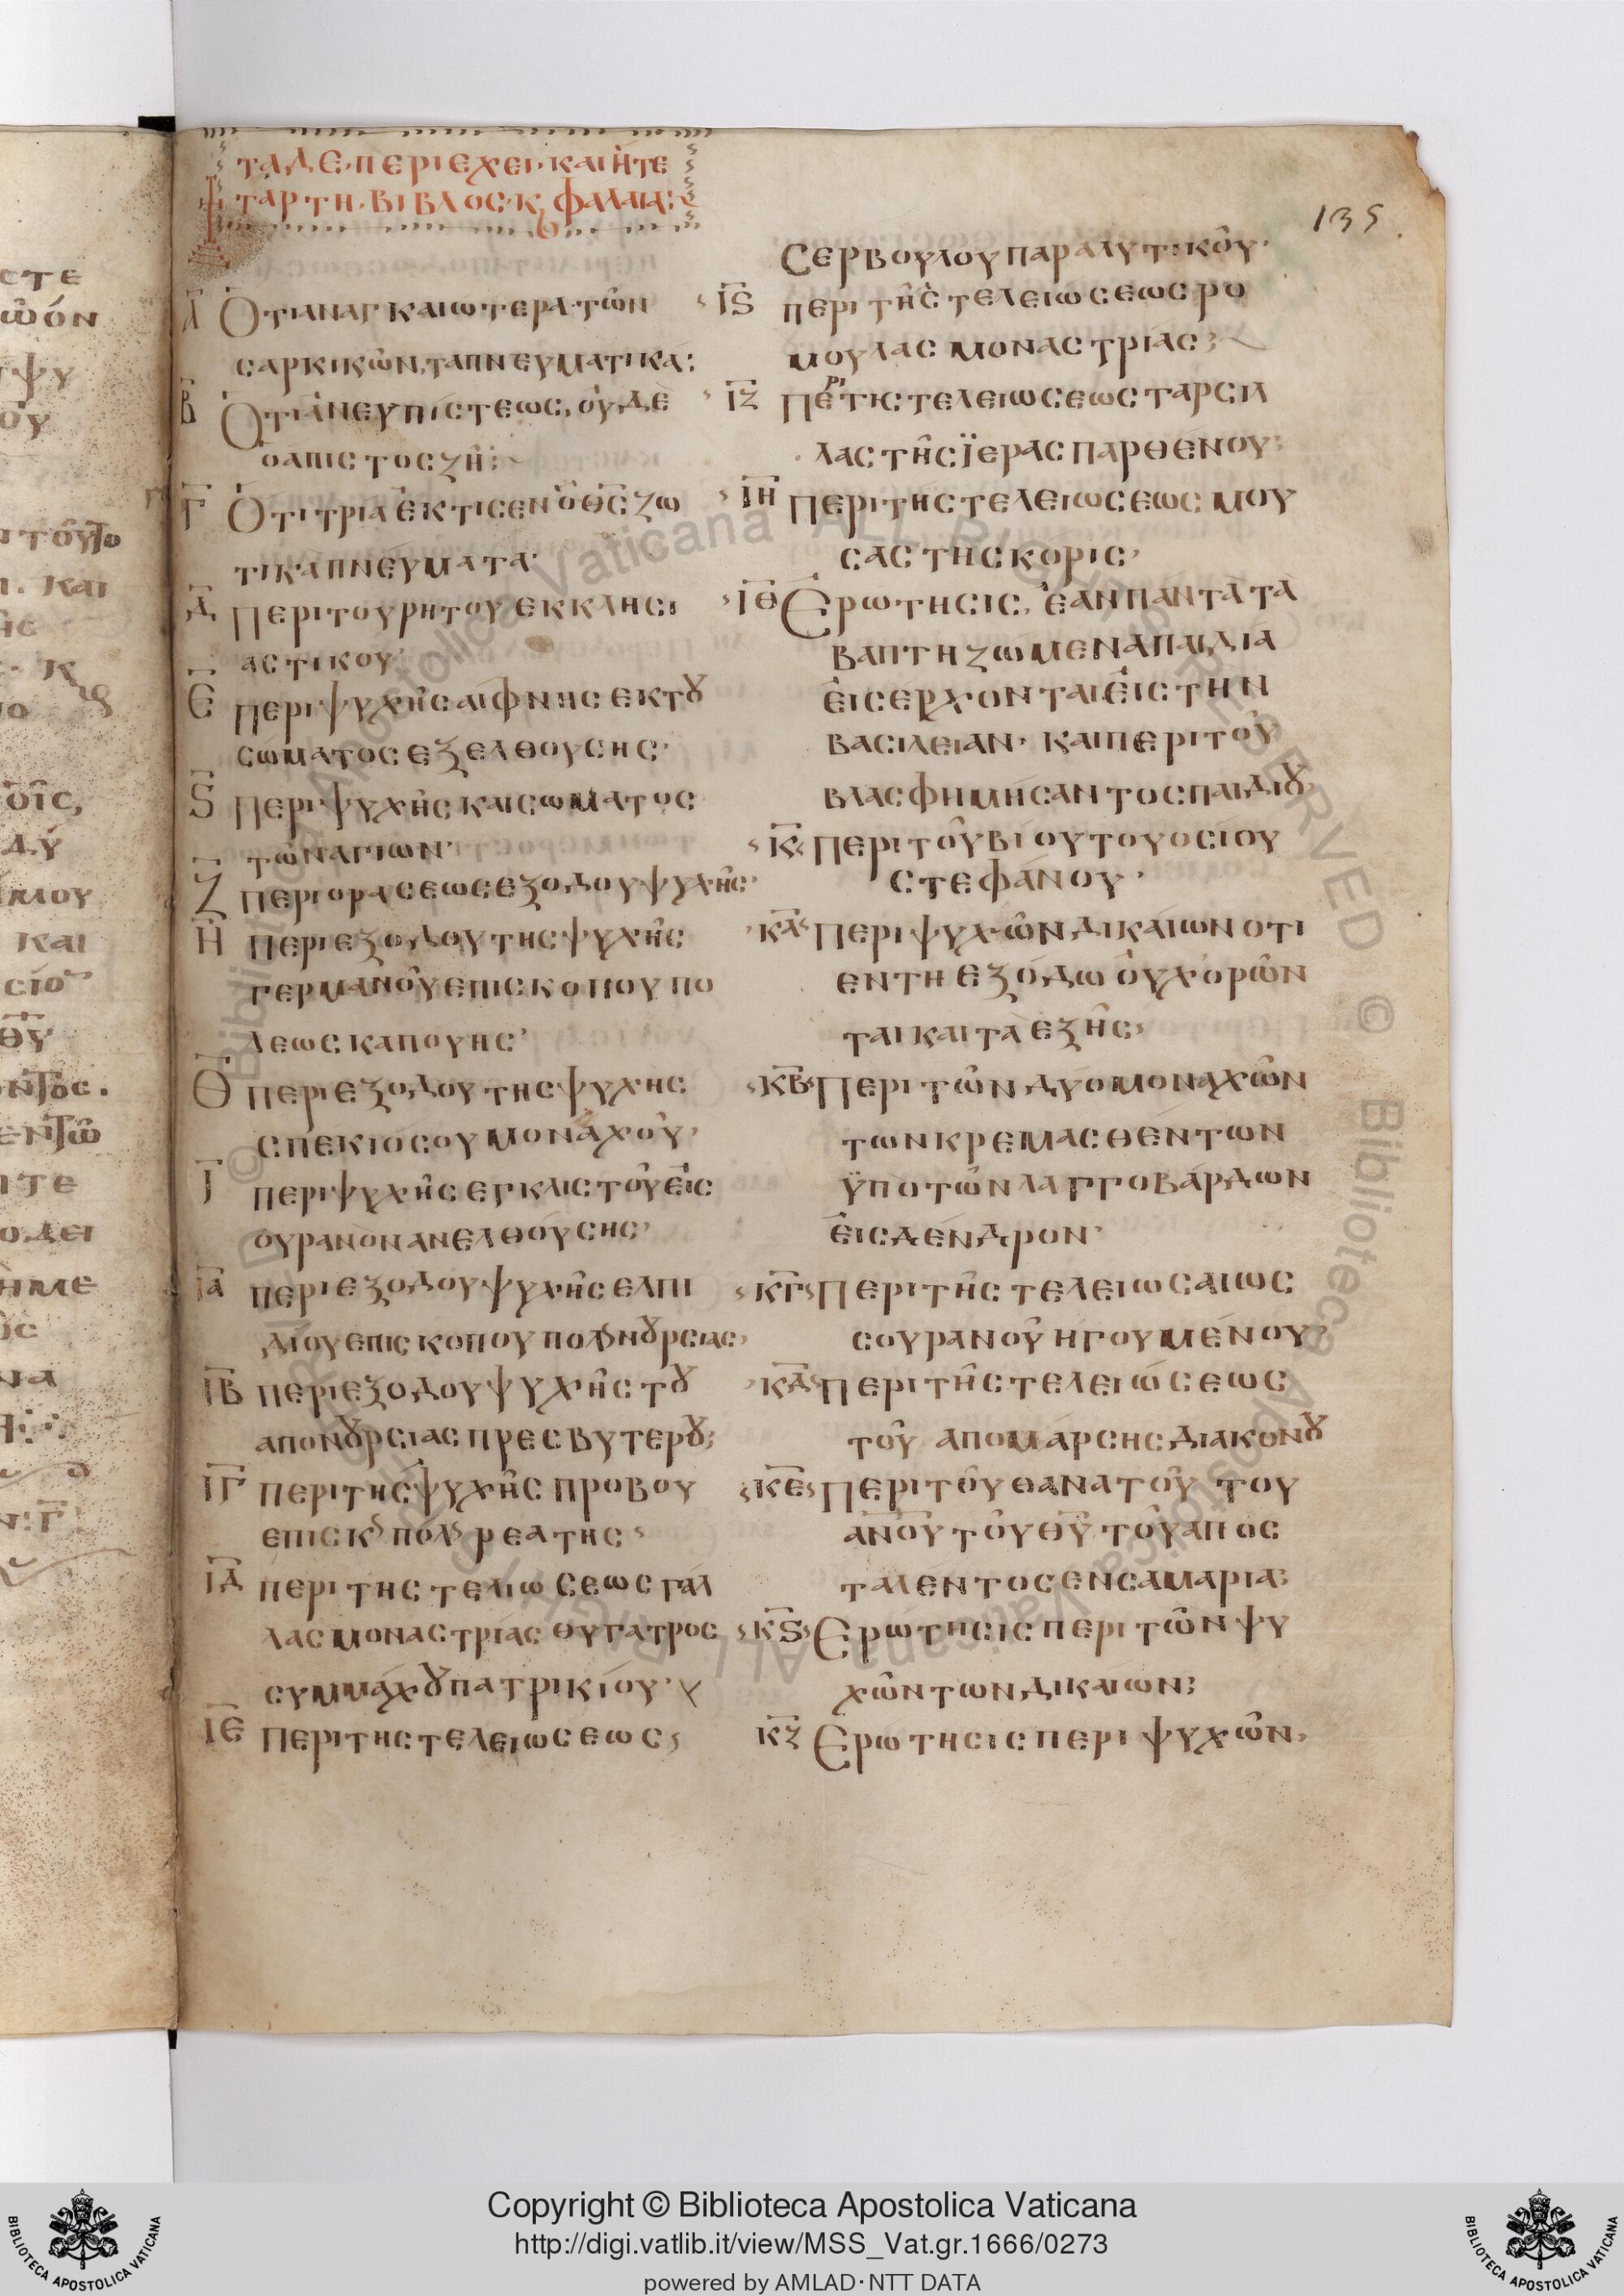 ΤΑΔΕ·ΠΕΡΙΕΧΕΙ·ΚΑΙ Ἡ ΤΕ
ΤΑΡΤΗ·ΒΙΒΛΟΣ·Κ ΦΑΛΑΙΑ:
135
Α ὉΤΙ ΑΝΑΓΚΑΙΩΤΕΡΑ·ΤΩ͂Ν
ΣΑΡΚΙΚΩ͂Ν, ΤΑ ΠΝΕΥΜΑΤΙΚΑ:
Β ὉΤΙ ἈΝΕΥ ΠΙΣΤΕΩΣ, ΟΥ̓ΔΕ
Ο ΑΠΙΣΤΟΣ ΖΗ͂:
Γ ὉΤΙ ΤΡΙΑ ΕΚΤΙΣΕΝ Ὁ ΘΣ ΖΩ
ΤΙΚΑ ΠΝΕΥΜΑΤΑ·
Δ ΠΕΡΙ ΤΟΥ ΡΗΤΟΥ ΕΚΚΛΗΣΙ
ΑΣΤΙΚΟΥ·
Ε ΠΕΡΙ ΨΥΧΗ͂Σ ΑΙΦΝΗΣ ΕΚ ΤȢ
ΣΩΜΑΤΟΣ ΕΞΕΛΘΟΥΣΗΣ·
Ϛ ΠΕΡΙ ΨΥΧΗ͂Σ ΚΑΙ ΣΩΜΑΤΟΣ
ΤΩ͂Ν ΑΓΙΩΝ·
Ζ ΠΕΡΙ ΟΡΑΣΕΩΣ ΕΞΟΔΟΥ ΨΥΧΗ͂Σ·
Η ΠΕΡΙ ΕΞΟΔΟΥ ΤΗΣ ΨΥΧΗ͂Σ
ΓΕΡΜΑΝΟΥ͂ ΕΠΙΣΚΟΠΟΥ ΠΟ
ΛΕΩΣ ΚΑΠΟΥΗΣ·
Θ ΠΕΡΙ ΕΞΟΔΟΥ ΤΗΣ ΨΥΧΗΣ
ΣΠΕΚΙΟΣΟΥ ΜΟΝΑΧΟΥ͂·
Ι ΠΕΡΙ ΨΥΧΗ͂Σ ΕΓΚΛΙΣΤΟΥ͂ ΕΙΣ
ΟΥΡΑΝΟΝ ΑΝΕΛΘΟΎΣΗΣ·
ΙΑ ΠΕΡΙ ΕΞΟΔΟΥ ΨΥΧΗ͂Σ ΕΛΠΙ
ΔΙΟΥ ΕΠΙΣΚΟΠΟΥ ΠΟΛ ΝȢΡΣΙΑΣ·
ΙΒ ΠΕΡΙ ΕΞΟΔΟΥ ΨΥΧΗ͂Σ ΤȢ
ΑΠΟ ΝȢΡΣΙΑΣ ΠΡΕΣΒΥΤΕΡȢ;
ΙΓ ΠΕΡΙ ΤΗΣ ΨΥΧΗ͂Σ ΠΡΟΒΟΥ
ΕΠΙΣΚ ΠΟΛ ΡΕΑΤΗΣ
ΙΔ ΠΕΡΙ ΤΗΣ ΤΕΛΙΩΣΕΩΣ ΓΑΛ
ΛΑΣ ΜΟΝΑΣΤΡΙΑΣ ΘΥΓΑΤΡΟΣ
ΣΥΜΜΑΧȢ ΠΑΤΡΙΚΙΟΥ·
ΙΕ ΠΕΡΙ ΤΗΣ ΤΕΛΕΙΩΣΕΩΣ
ΣΕΡΒΟΥΛΟΥ ΠΑΡΑΛΥΤΙΚΟΥ͂·
ΙϚ ΠΕΡΙ ΤΗ͂Σ ΤΕΛΕΙΩΣΕΩΣ ΡΟ
ΜΟΥΛΑΣ ΜΟΝΑΣΤΡΙΑΣ;
ΙΖ ΠΕΡΙ ΤΙΣ ΤΕΛΕΙΩΣΕΩΣ ΤΑΡΣΙΛ
ΛΑΣ ΤΗ͂Σ ΪΕΡΑΣ ΠΑΡΘΕΝΟΥ;
ΙΗ ΠΕΡΙ ΤΗΣ ΤΕΛΕΙΩΣΕΩΣ ΜΟΥ
ΣΑΣ ΤΗΣ ΚΟΡΙΣ·
ΙΘ ΕΡΩΤΗΣΙΣ, ἘΑΝ ΠΑΝΤΑ ΤΑ
ΒΑΠΤΗΖΩΜΕΝΑ ΠΑΙΔΙΑ
ΕΙΣΕΡΧΟΝΤΑΙ ΕΙΣ ΤΗΝ
ΒΑΣΙΛΕΙΑΝ· ΚΑΙ ΠΕΡΙ ΤΟΥ͂
ΒΛΑΣΦΗΜΗΣΑΝΤΟΣ ΠΑΙΔΙȢ
Κ ΠΕΡΙ ΤΟΥ͂ ΒΙΟΥ ΤΟΥ ΟΣΙΟΥ
ΣΤΕΦΑΝΟΥ·
ΚΑ ΠΕΡΙ ΨΥΧΩ͂Ν ΔΙΚΑΙΩΝ ΟΤΙ
ΕΝ ΤΗ ΕΞΟΔΩ ΟΥΧ ΟΡΩ͂Ν
ΤΑΙ ΚΑΙ ΤΑ ΕΞΗ͂Σ·
ΚΒ ΠΕΡΙ ΤΩ͂Ν ΔΥΟ ΜΟΝΑΧΩ͂Ν
ΤΩΝ ΚΡΕΜΑΣΘΕΝΤΩΝ
ΫΠΟ ΤΩ͂Ν ΛΑΓΓΟΒΑΡΔΩΝ
ΕΙΣ ΔΕΝΔΡΟΝ·
ΚΓ ΠΕΡΙ ΤΗ͂Σ ΤΕΛΕΙΩΣΑΙΩΣ
ΣΟΥΡΑΝΟΥ͂ ΗΓΟΥΜΕΝΟΥ·
ΚΔ ΠΕΡΙ ΤΗ͂Σ ΤΕΛΕΙΩΣΕΩΣ
ΤΟΥ͂ ΑΠΟ ΜΑΡΣΗΣ ΔΙΑΚΟΝȢ
ΚΕ ΠΕΡΙ ΤΟΥ͂ ΘΑΝΑΤΟΥ͂ ΤΟΥ
ΑΝΟΥ ΤΟΥ ΘΥ ΤΟΥ ΑΠΟΣ
ΤΑΛΕΝΤΟΣ ΕΝ ΣΑΜΑΡΙΑ;
ΚϚ ΕΡΩΤΗΣΙΣ ΠΕΡΙ ΤΩ͂Ν ΨΥ
ΧΩ͂Ν ΤΩΝ ΔΙΚΑΙΩΝ;
ΚΖ ΕΡΩΤΗΣΙΣ ΠΕΡΙ ΨΥΧΩ͂Ν,
Copyright © Biblioteca Apostolica Vaticana
http://digi.vatlib.it/view/MSS_Vat.gr.1666/0273
powered by AMLAD·NTT DATA
BIBLIOTECA APOSTOLICA VATICANA
BIBLIOTECA APOSTOLICA VATICANA